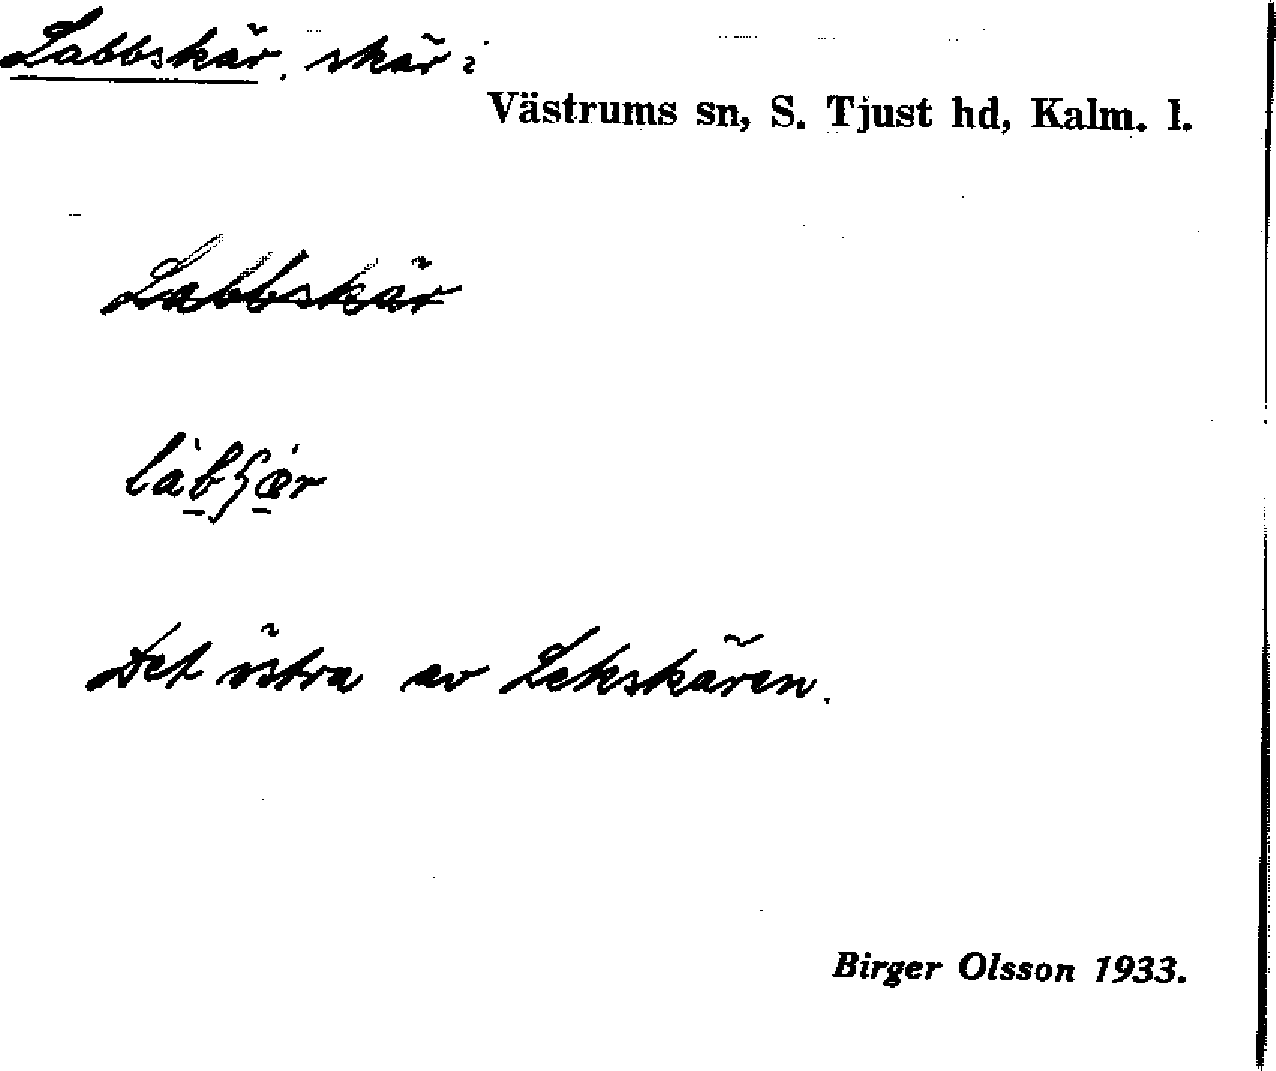 Labbskär, skär i
Västrums sn, S. Tjust hd, Kalm. l.
Labbskär
Det östra av Lekskären.
Birger Olsson 1933.